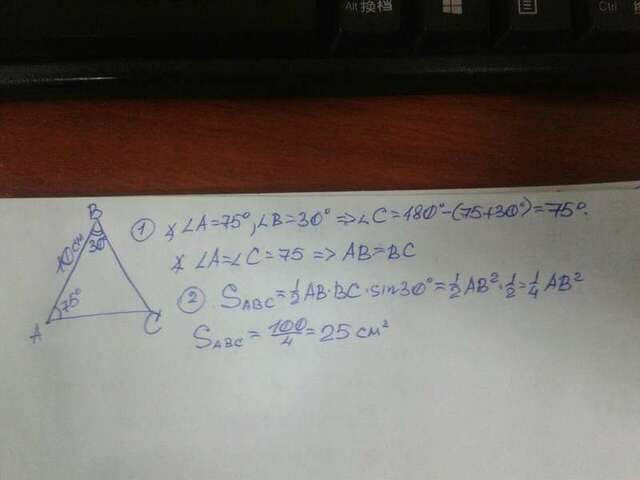 Alt 换档
Ctrl
B
10 см
30°
75°
A
C
① ∡ ∠A=75°, ∠B=30° => ∠C=180°-(75+30°)=75°.
∡ ∠A=∠C=75 => AB=BC
② S_ABC=½AB·BC·sin30°=½AB²·½=¼AB²
S_ABC=100/4=25 см²